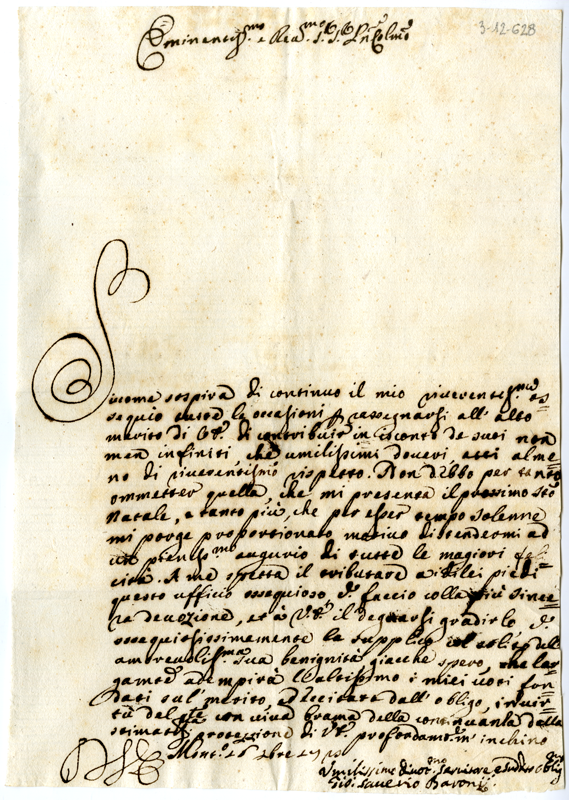 3-12-628
Eminentiss.mo e Reu.mo S.r S.r P.n Colmo
Sicome sospira di continuo il mio riuerentiss.mo os=
sequio tutte le occasioni rassegnarsi all' alto
merito di di contribuir in isconto de suoi non
men infiniti che umilissimi doueri, atti alme=
no di riuerentissimo rispetto. Non debbo per tanto
ommetter quella, che mi presenta il prossimo
Natale, e tanto più, che per esser tempo solenne
mi porge proportionato motiuo di stendermi ad
un augurio di tutte le magiori feli
cità. A me spetta il tributare a piedi
questo ufficio ossequioso, faccio colla più since=
ra deuozione, et à il degnarsi gradirlo
ossequiosissimamente la supplico solito
amoreuoliss.ma sua benignità, giacche spero, che lar
gamte adempirà l'Altissimo i miei uoti fon
dati sul' merito, dall' obligo, in uir
tù del con uiua brama della continuanza della
stimatis protezione di profondam.te m' inchino
Mont.
Umilissimo diuot.mo Seruitore e Suddito oblig
Gio. Sauerio Baroni